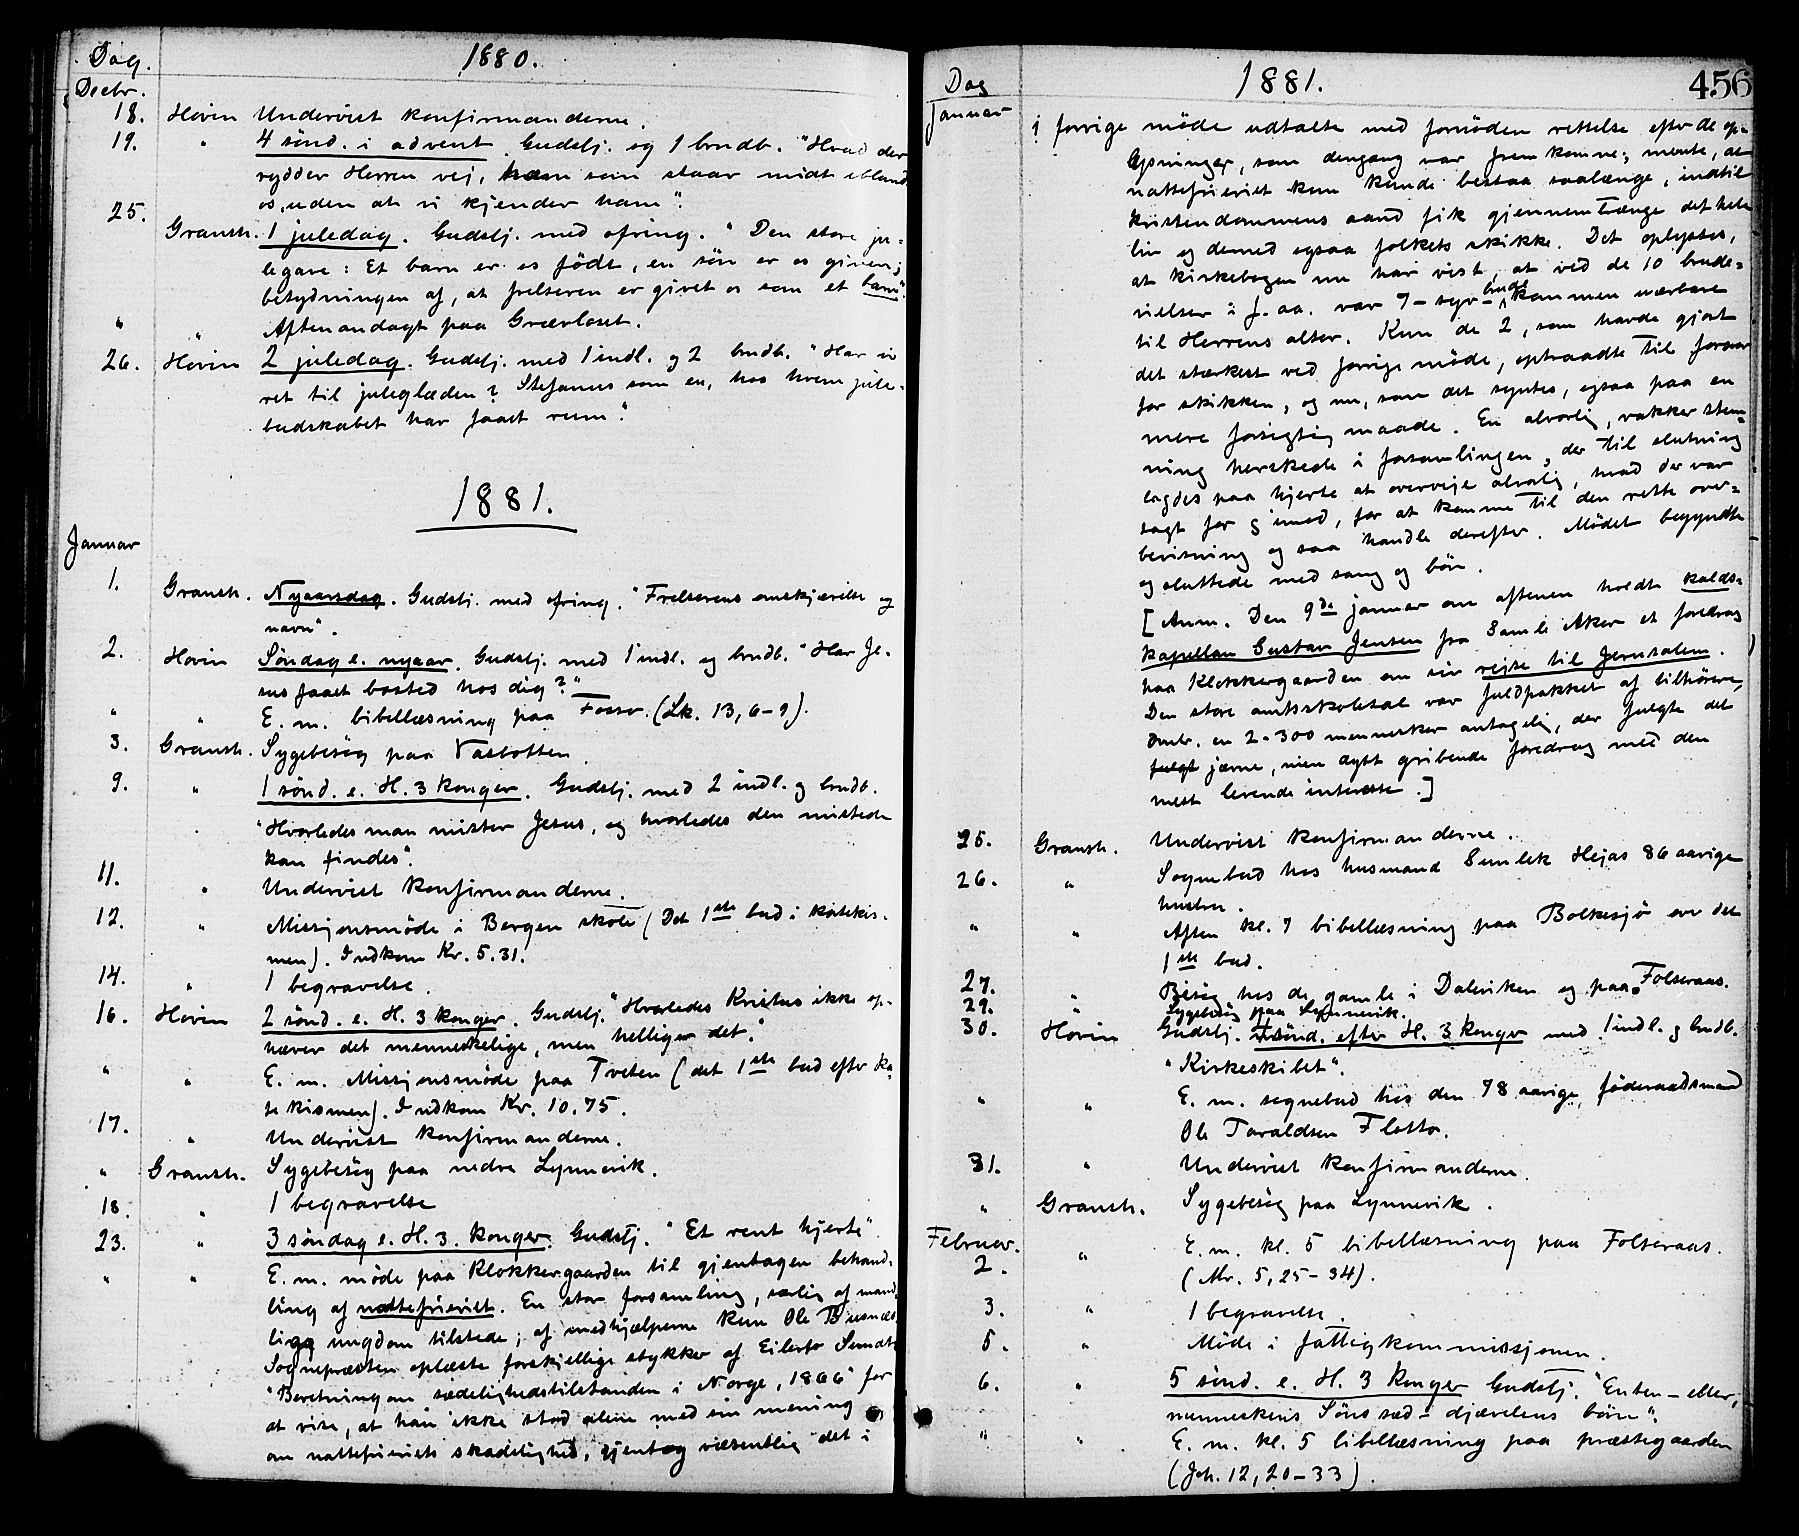 Dag. 1880.
Decbr.
18. Hovin Undervist konfirmanderne.
19. " 4 sönd. i advent. Gudstj. og 1 brudb. "Hvad der
rydder Herren vej, ham som staar midt iblandt
os, uden at vi kjender ham".
25. Gransh. 1 juledag. Gudstj. med ofring. "Den store ju-
legave: Et barn er os födt, en sön er os given;
betydningen af, at frelseren er givet os som et barn".
" " Aftenandagt paa Grævloset.
26. Hovin 2 juledag. Gudstj. med 1 indl. og 2 brudb. "Har vi
ret til juleglæden? Stefanus som en, hos hvem jule-
budskabet har faaet rum."
1881.
Januar
1. Gransh. Nyaarsdag. Gudstj. med ofring. "Frelserens omskjærelse og
navn".
2. Hovin Söndag e. nyaar. Gudstj. med 1 indl. og brudb. "Har Je-
sus faaet bosted hos dig?"
" " E. m. bibellæsning paa Fosso. (Lk. 13, 6-9).
3. Gransh. Sygebesög paa Vasbotten.
9. " 1 sönd. e. H. 3 konger. Gudstj. med 2 indl. og brudb.
"Hvorledes man mister Jesus, og hvorledes den mistede
kan findes".
11. " Undervist konfirmanderne.
12. " Missjonsmöde i Bergen skole (Det 1ste bud i katekis-
men). Indkom Kr. 5.31.
14. " 1 begravelse.
16. Hovin 2 sönd. e. H. 3 konger. Gudstj. "Hvorledes Kristus ikke op-
hæver det menneskelige, men helliger det."
" " E. m. Missjonsmöde paa Tveten (det 1ste bud efter ka-
tekismen). Indkom Kr. 10.75.
17. " Undervist konfirmanderne.
" Gransh. Sygebesög paa nedre Lynnevik.
18. " 1 begravelse
23. " 3 söndag e. H. 3. konger. Gudstj. "Et rent hjerte".
" " E. m. möde paa Klokkergaarden til gjentagen behand-
ling af nattefrieriet. En stor forsamling, særlig af mand-
lig ungdom tilstede; af medhjælperne kun Ole Busnæs.
Sognepræsten oplæste forskjellige stykker af Eilerts Sundts
"Beretning om sædelighedstilstanden i Norge, 1866" for
at vise, at han ikke stod alene med sin mening
om nattefrieriets skadelighed, gjentog væsentlig det i
Dag 1881. 456
Januar
i forrige möde udtalte med fornöden rettelse efter de op-
lysninger, som dengang var fremkomne; mente, at
nattefrieriet kun kunde bestaa saalænge, indtil
kristendommens aand fik gjennemtrænge det hele
liv og dermed ogsaa folkets skikke. Det oplystes,
at kirkebogen nu har vist, at ved de 10 brude-
vielser i f. aa. var 7 - syv - brude kommen uærbare
til Herrens alter. Kun de 2, som havde gjort
det stærkest ved forrige möde, optraadte til forsvar
for skikken, og nu, som det syntes, ogsaa paa en
mere forsigtig maade. En alvorlig, vakker stem-
ning herskede i forsamlingen, der til slutning
lagdes paa hjerte at overveje alvorlig, hvad der var
sagt for og imod, for at komme til den rette over-
bevisning og saa handle derefter. Mödet begyndte
og sluttede med sang og bön.
[Anm. Den 9de januar om aftenen holdt kalds-
kapellan Gustav Jensen fra Gamle Aker et foredrag
paa Klokkergaarden om sin rejse til Jerusalem.
Den store amtsskolesal var fuldpakket af tilhörere,
omtr. en 2-300 mennesker antagelig, der fulgte det
jævne, men dybt gribende foredrag med den
mest levende interesse.]
25. Gransh. Undervist konfirmanderne.
26. " Sognebud hos husmand Gunlek Hejas 86 aarige
hustru.
" " Aften kl. 7 bibellæsning paa Bolkesjö over det
1ste bud.
27. " Besög hos de gamle i Dalsviken og paa Folseraas.
29. " Sygebesög paa Lynnevik.
30. Hovin Gudstj. 4 sönd. efter H. 3 konger med 1 indl. og brudb.
"Kirkeskibet".
" " E. m. sognebud hos den 78 aarige föderaadsmand
Ole Taraldsen Flatto.
31. " Undervist konfirmanderne.
" Gransh. Sygebesög paa Lynnevik.
Februar.
2. " E. m. kl. 5 bibellæsning paa Folseraas.
(Mr. 5, 25-34).
3. " 1 begravelse.
5. " Möde i fattigkommissjonen.
6. " 5 sönd. e. H. 3 konger Gudstj. "Enten - eller,
menneskens Söns sæd - djævelens börn".
" " E. m. kl. 5 bibellæsning paa præstegaarden
(Joh. 12, 20-33).